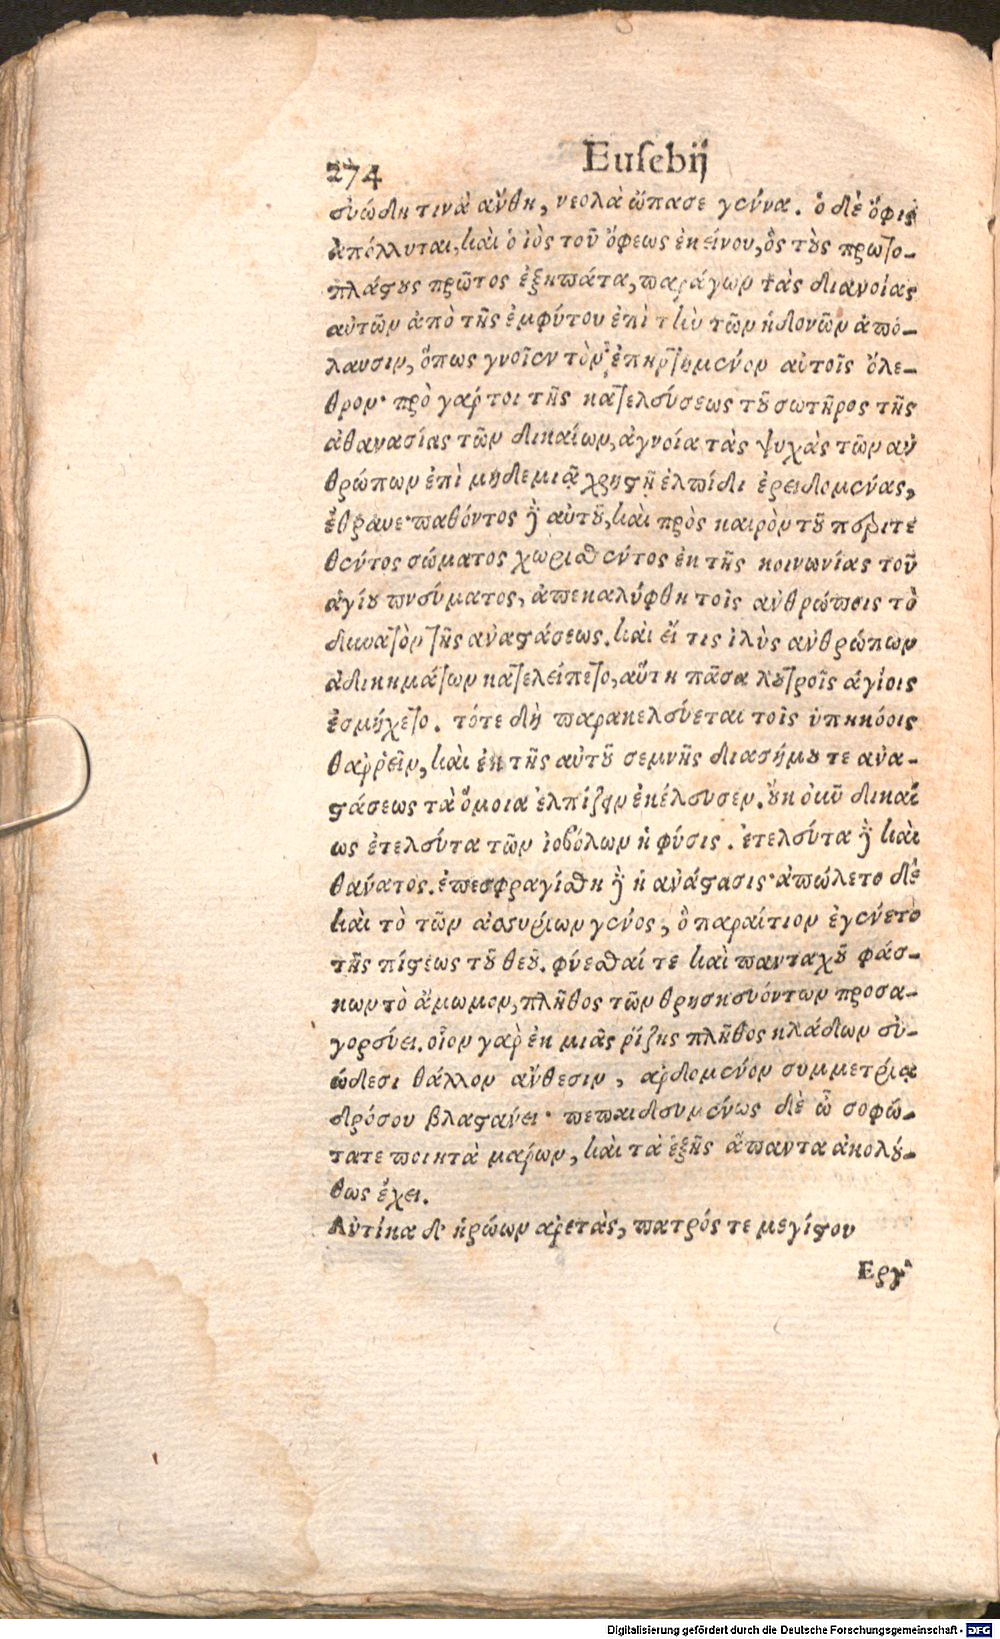 274
Eusebij
εὐώδη τινὰ ἄνθη, νεολὰ ὤπασε γέννα. ὁ δὲ ὄφις
ἀπόλλυται, καὶ ὁ ἰὸς τοῦ ὄφεως ἐκείνου, ὃς τοὺς πρωτο-
πλάστους πρῶτος ἐξηπάτα, παράγων τὰς διανοίας
αὐτῶν ἀπὸ τῆς ἐμφύτου ἐπὶ τὴν τῶν ἡδονῶν ἀπό-
λαυσιν, ὅπως γνοῖεν τὸν ἐπηρτημένον αὐτοῖς ὄλε-
θρον· πρὸ γάρ τοι τῆς κατελεύσεως τοῦ σωτῆρος τῆς
ἀθανασίας τῶν δικαίων, ἀγνοία τὰς ψυχὰς τῶν ἀν
θρώπων ἐπὶ μηδεμιᾷ χρηστῇ ἐλπίδι ἐρειδομένας,
ἔθραυε· παθόντος δὲ αὐτοῦ, καὶ πρὸς καιρὸν τοῦ περιτε
θέντος σώματος χωρισθέντος ἐκ τῆς κοινωνίας τοῦ
ἁγίου πνεύματος, ἀπεκαλύφθη τοῖς ἀνθρώποις τὸ
δυνατὸν τῆς ἀναστάσεως. καὶ εἴ τις ἰλὺς ἀνθρώπων
ἀδικημάτων κατελείπετο, αὕτη πᾶσα λουτροῖς ἁγίοις
ἐσμήχετο. τότε δὴ παρακελεύεται τοῖς ὑπηκόοις
θαῤῥεῖν, καὶ ἐκ τῆς αὐτοῦ σεμνῆς διασήμου τε ἀνα-
στάσεως τὰ ὅμοια ἐλπίζειν ἐκέλευσεν. οὐκοῦν δικαί
ως ἐτελεύτα τῶν ἰοβόλων ἡ φύσις. ἐτελεύτα δὲ καὶ
θάνατος. ἐπεσφραγίσθη δὲ ἡ ἀνάστασις· ἀπώλετο δὲ
καὶ τὸ τῶν ἀσσυρίων γένος, ὃ παραίτιον ἐγένετο
τῆς πίστεως τοῦ θεοῦ. φύεσθαί τε καὶ πανταχοῦ φάσ-
κων τὸ ἄμωμον, πλῆθος τῶν θρησκευόντων προσα-
γορεύει. οἷον γὰρ ἐκ μιᾶς ῥίζης πλῆθος κλάδων εὐ-
ώδεσι θάλλον ἄνθεσιν, ἀρδομένον συμμετρίᾳ
δρόσου βλαστάνει· πεπαιδευμένως δὲ ὦ σοφώ-
τατε ποιητὰ μάρων, καὶ τὰ ἑξῆς ἅπαντα ἀκολού-
θως ἔχει.
Αὐτίκα δ' ἡρώων ἀρετὰς, πατρός τε μεγίστου
Εργ'
Digitalisierung gefördert durch die Deutsche Forschungsgemeinschaft - DFG